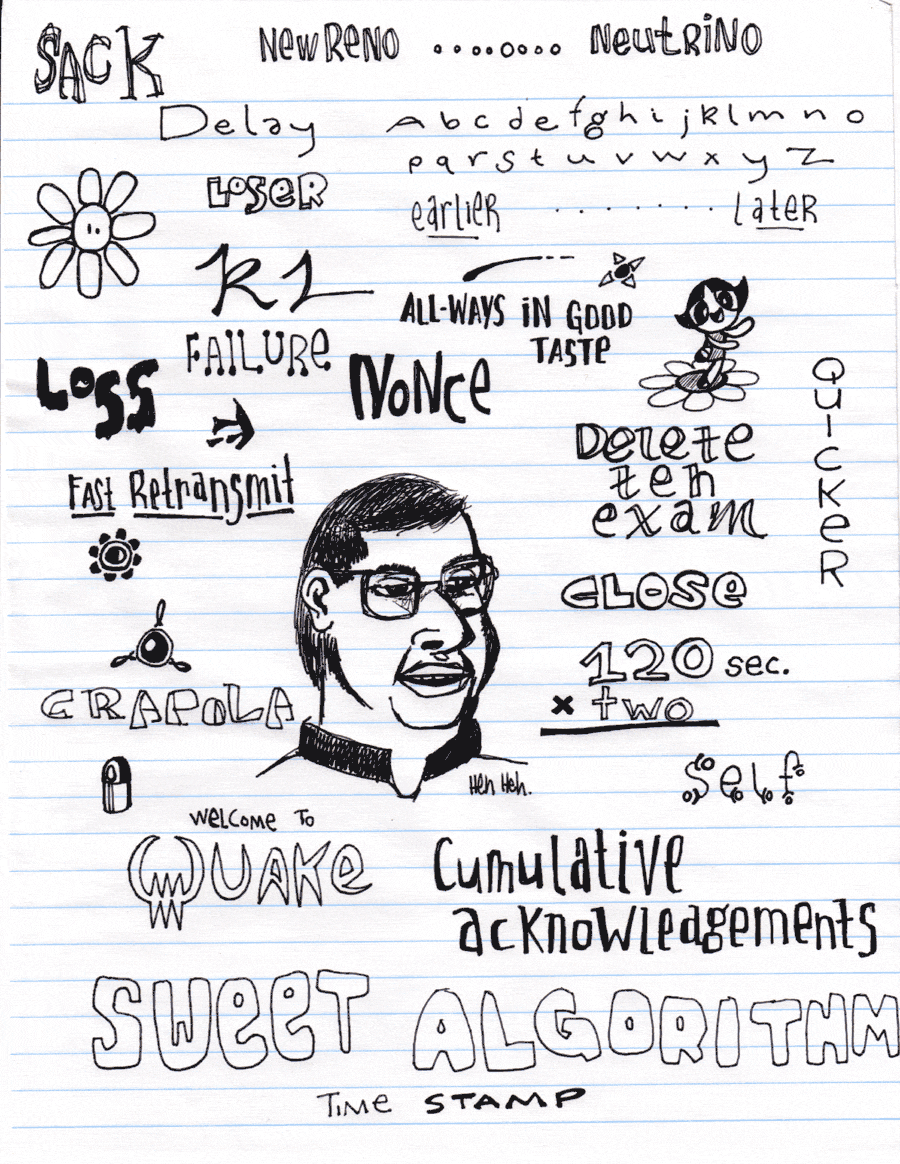 SACK
NewReNO ......... NeutRiNO
Delay
A b c d e f g h i j k l m n o
p q r s t u v w x y z
LOSeR
earlieR ........ lateR
R1
ALL-WAYS iN GOOD
TASTe
FAILURe
LOSS
NoNce
QuicKeR
Delete
teh
exam
FAST Retransmit
CLOSe
120 sec.
× two
CRAPOLA
Heh Heh.
Self
WeLCOMe To
QUAKe
Cumulative
acKnoWledgements
SWeeT ALGORITHM
TiMe STAMP